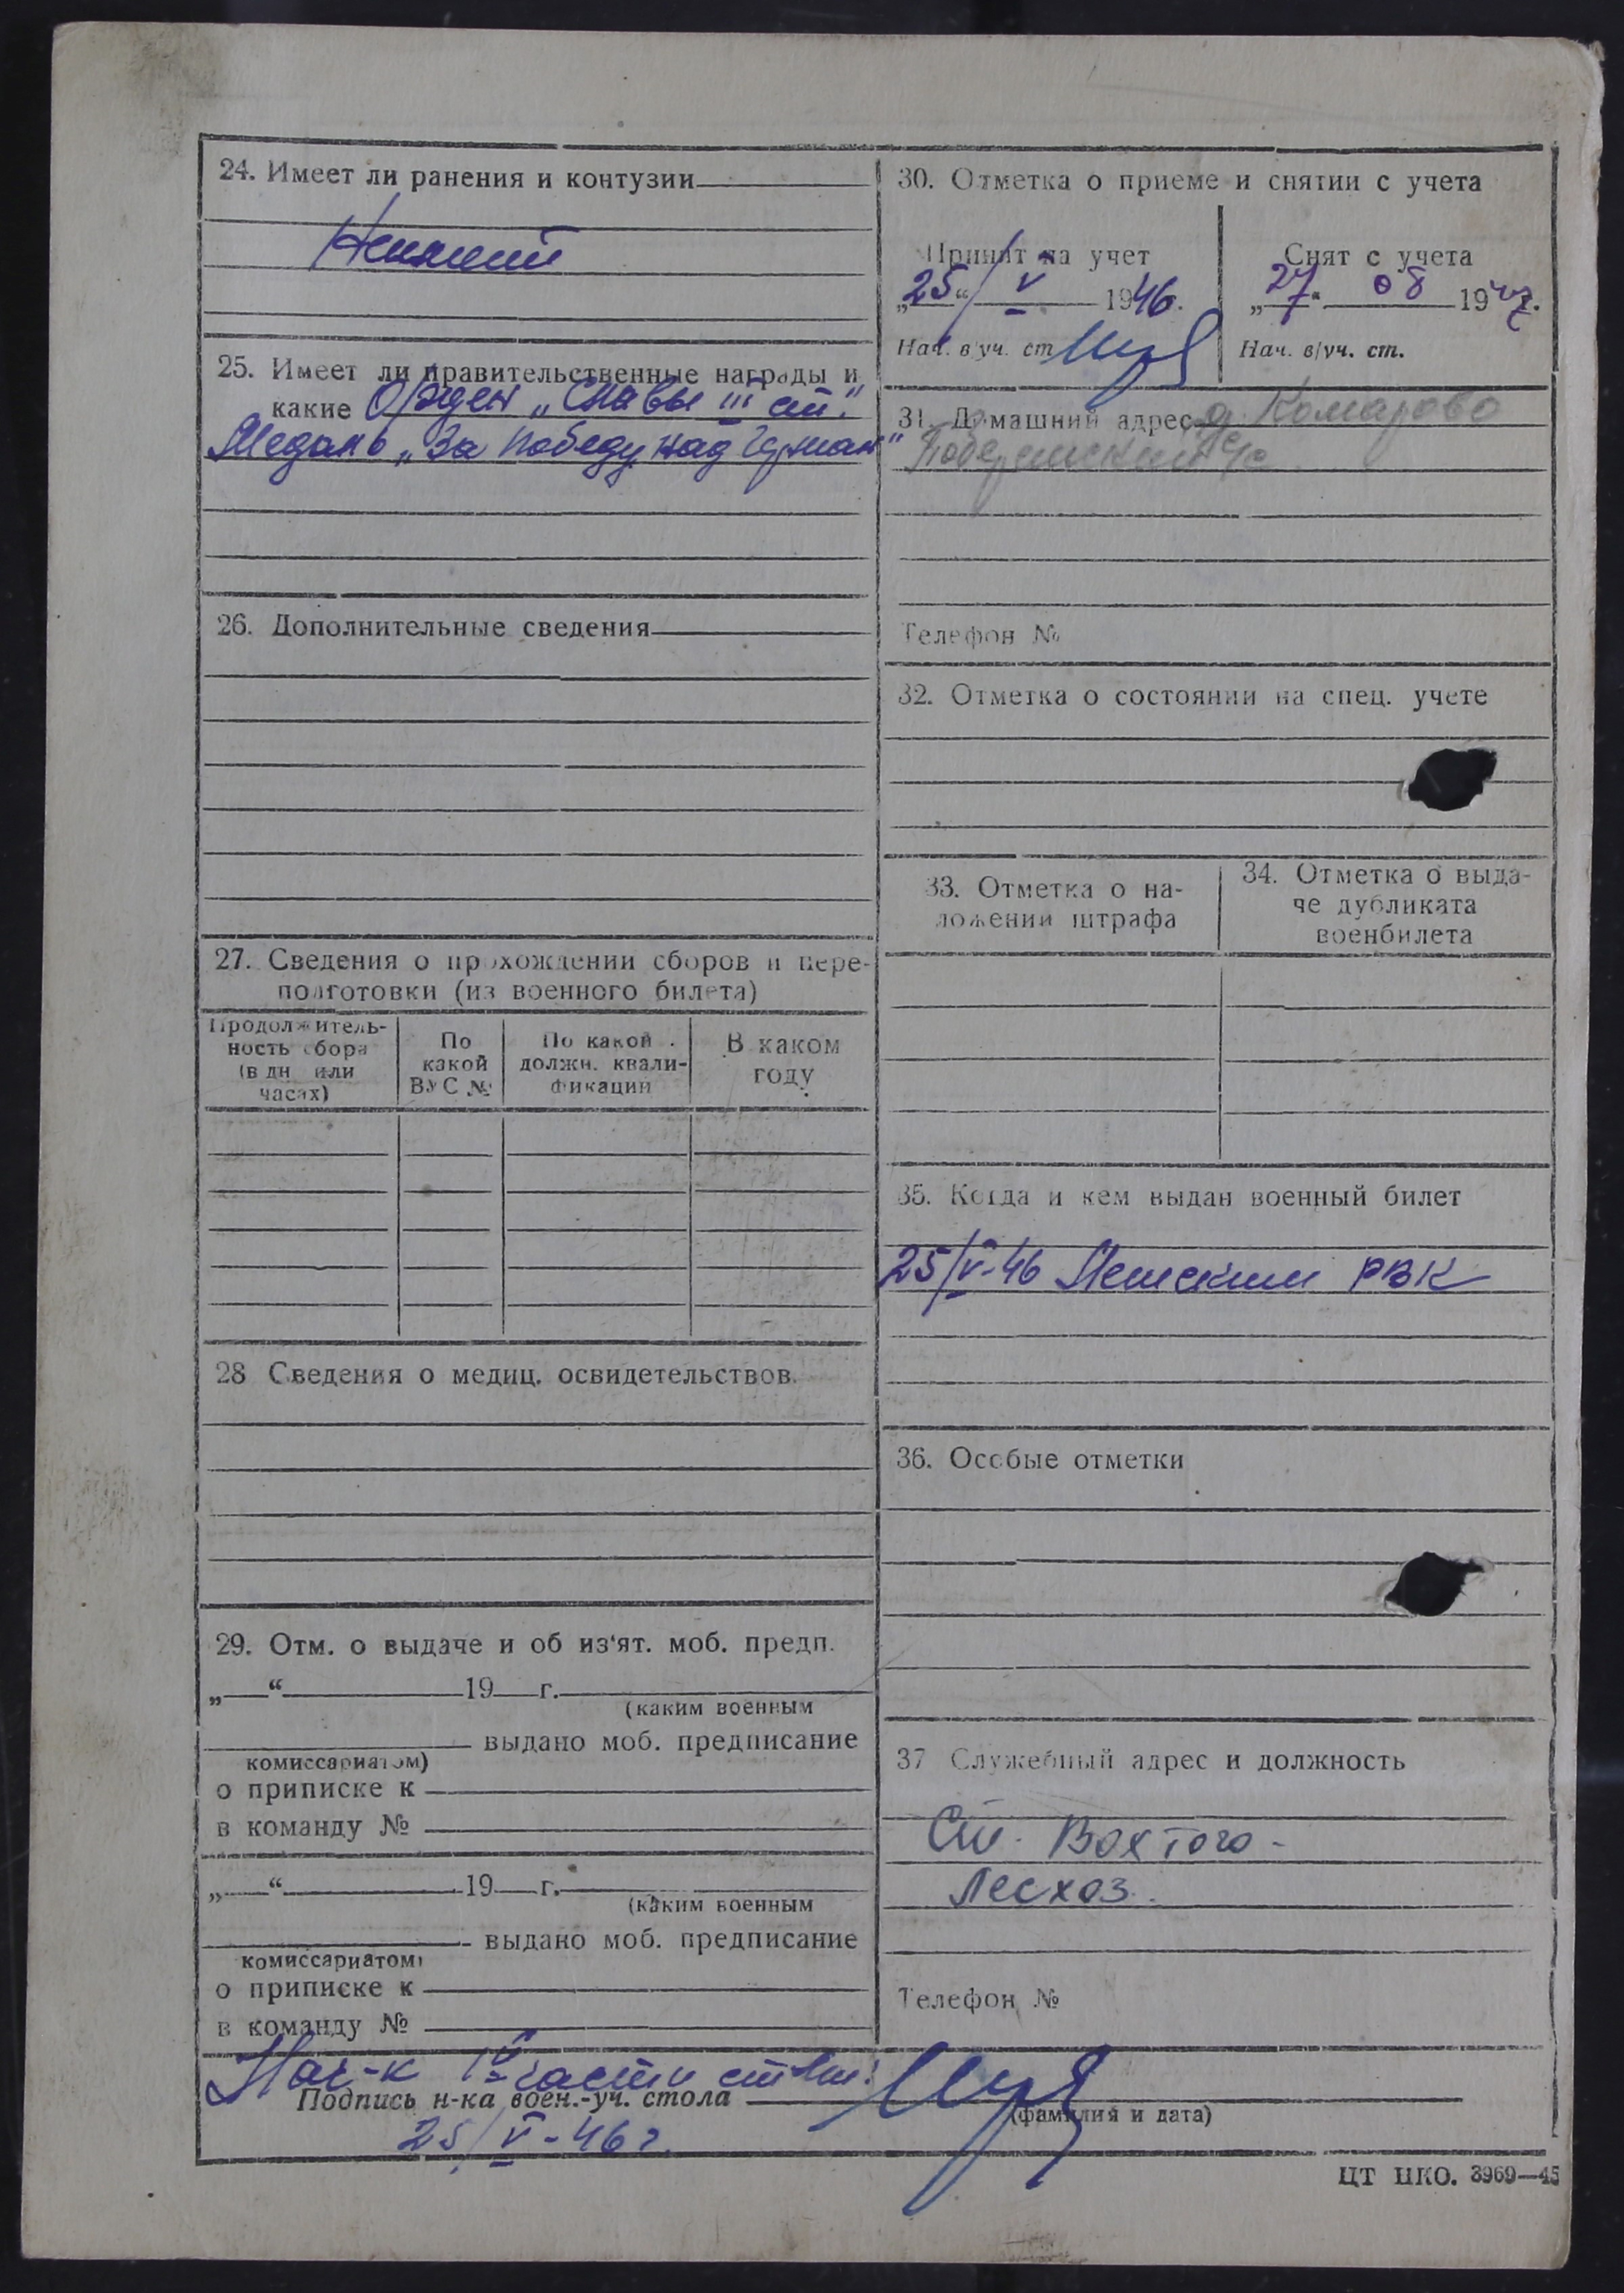 24. Имеет ли ранения и контузии
25. Имеет ли правительственные награды и
какие Орден „Славы III ст."
Медаль „За победу над Герман"
26. Дополнительные сведения
27. Сведения о прохождении сборов и пере-
подготовки (из военного билета)
Продолжитель-
ность сбора
(в дн или
часах)
По
какой
ВУС №
По какой
должн. квали-
фикации
В каком
году
28 Сведения о медиц. освидетельствов.
29. Отм. о выдаче и об из'ят. моб. предп.
„ “ 19 г.
(каким военным
выдано моб. предписание
комиссариатом)
о приписке к
в команду №
„ “ 19 г.
(каким военным
выдано моб. предписание
комиссариатом)
о приписке к
в команду №
30. Отметка о приеме и снятии с учета
Принят на учет
„25“ V 1946.
Нач. в/уч. ст
Снят с учета
„27“ 08 1947г.
Нач. в/уч. ст.
31. Домашний адрес д. Комарово
с/с
Телефон №
32. Отметка о состоянии на спец. учете
33. Отметка о на-
ложении штрафа
34. Отметка о выда-
че дубликата
военбилета
35. Когда и кем выдан военный билет
25/V-46 РВК
36. Особые отметки
37 Служебный адрес и должность
Ст. Вохтога -
Лесхоз.
Телефон №
Нач-к части
Подпись н-ка воен.-уч. стола
(фамилия и дата)
25/V-46 г.
ЦТ НКО. 3969—45